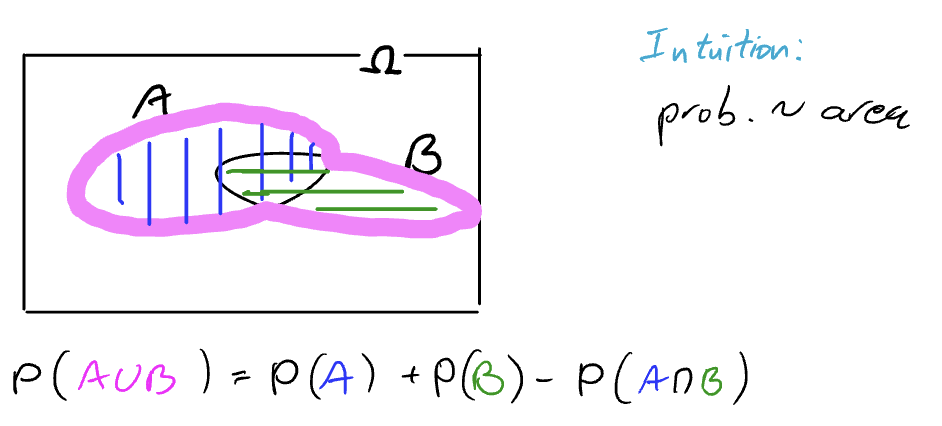 Ω
A
B
Intuition:
prob. ~ area
P(A∪B) = P(A) + P(B) - P(A∩B)